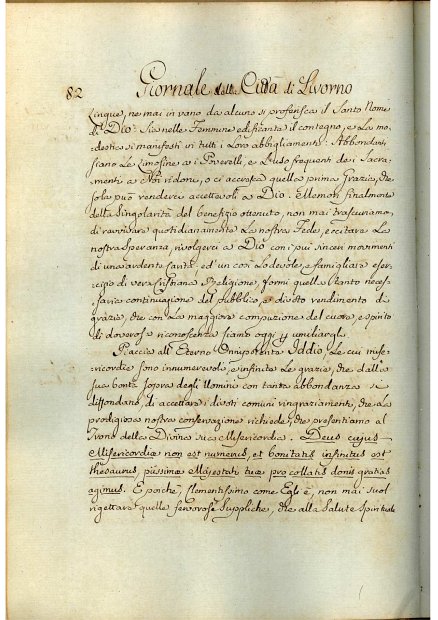 82 Giornale della Città di Livorno
cinque, ne mai in vano da alcuno si proferisca il Santo Nome
di Dio: Sia nelle Femmine edificante il contegno, e la mo-
destia si manifesti in tutti i Loro abbigliamenti: Abbondino,
siano Le Limosine a i Poverelli, e L'uso frequente de i Sacra-
menti a Noi ridoni, o ci accresca quella prima Grazia, che
sola può renderci accettevoli a Dio: Memori finalmente
della Singolarità del benefizio ottenuto, non mai trascuriamo,
di ravvivare quotidianamente La nostra Fede, eccitare La
nostra Speranza, rivolgerci a Dio con i più sinceri movimenti
di una ardente Carità, ed un così Lodevole, e famigliare eser-
cizio di vera Cristiana Religione, formi quella tanto neces-
saria continuazione del pubblico, e divoto rendimento di
grazie, che con La maggiore compunzione del cuore, e spirito
di doverosa riconoscenza siamo oggi
Piaccia all'Eterno Onnipotente Iddio, Le cui mise-
ricordie sono innumerevoli, e infinite Le grazie, che dalla
sua bontà sopra degli Uomini con tanta abbondanza si
diffondano, di accettare i divoti comuni ringraziamenti, che La
prodigiosa nostra conservazione richiede, che presentiamo al
Trono della Divina sua Misericordia. Deus cujus
Misericordiæ non est numerus, et bonitatis infinitus est
thesaurus, piissimæ Majestati tuæ pro collatis donis gratias
agimus. E poichè, Clementissimo come Egli è, non mai suol
rigettare quelle fervorose Suppliche, che alla Salute Spirituale